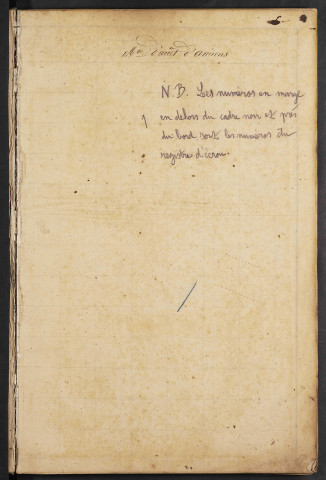 Mon d'arrêt d'Amiens
N.B. Les numéros en marge
en dehors du cadre noir et près
du bord sont les numéros du
registre d'écrou.